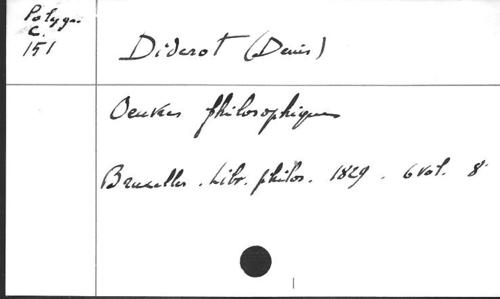 Polygr.
C.
151
Diderot (Denis)
Oeuvres philosophiques
Bruxelles. Libr. philos. 1829. 6 vol. 8°